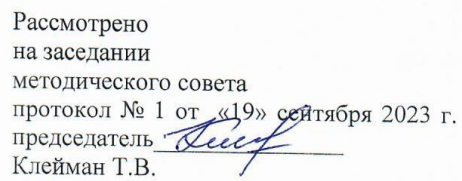 Рассмотрено
на заседании
методического совета
протокол № 1 от «19» сентября 2023 г.
председатель
Клейман Т.В.